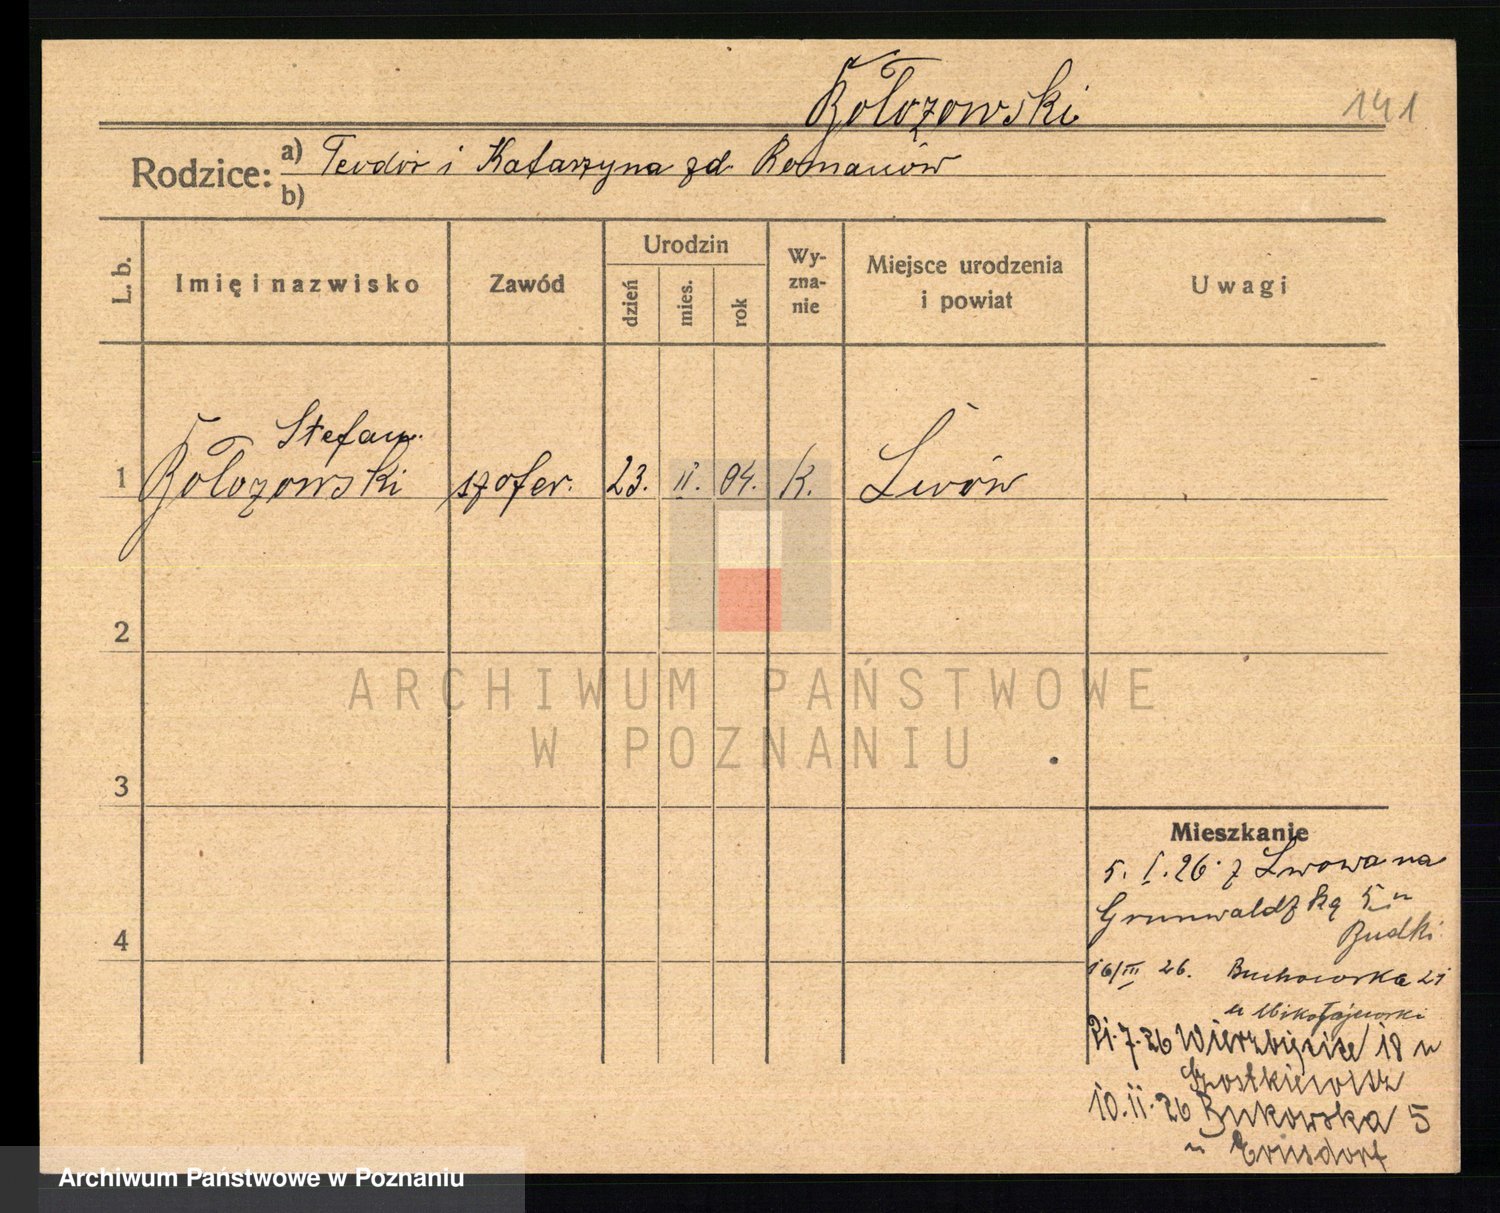 Kołozowski
141
Rodzice: a) Teodor i Katarzyna zd. Romanów
b)
L. b.
Imię i nazwisko
Zawód
Urodzin
dzień
mies.
rok
Wy-
zna-
nie
Miejsce urodzenia
i powiat
Uwagi
Stefan
1 Kołozowski szofer. 23. II. 04. K. Lwów
2
3
4
ARCHIWUM PAŃSTWOWE
W POZNANIU
Mieszkanie
5. I. 26. z Lwowa na
Grunwaldzką 5 u
Budki
16/III 26. Bukowska 21
u Mikołajewski
21.7.26 Wierzbięcice 18 u
Szostkiewicz
10.11.26 Bukowska 5
u
Archiwum Państwowe w Poznaniu